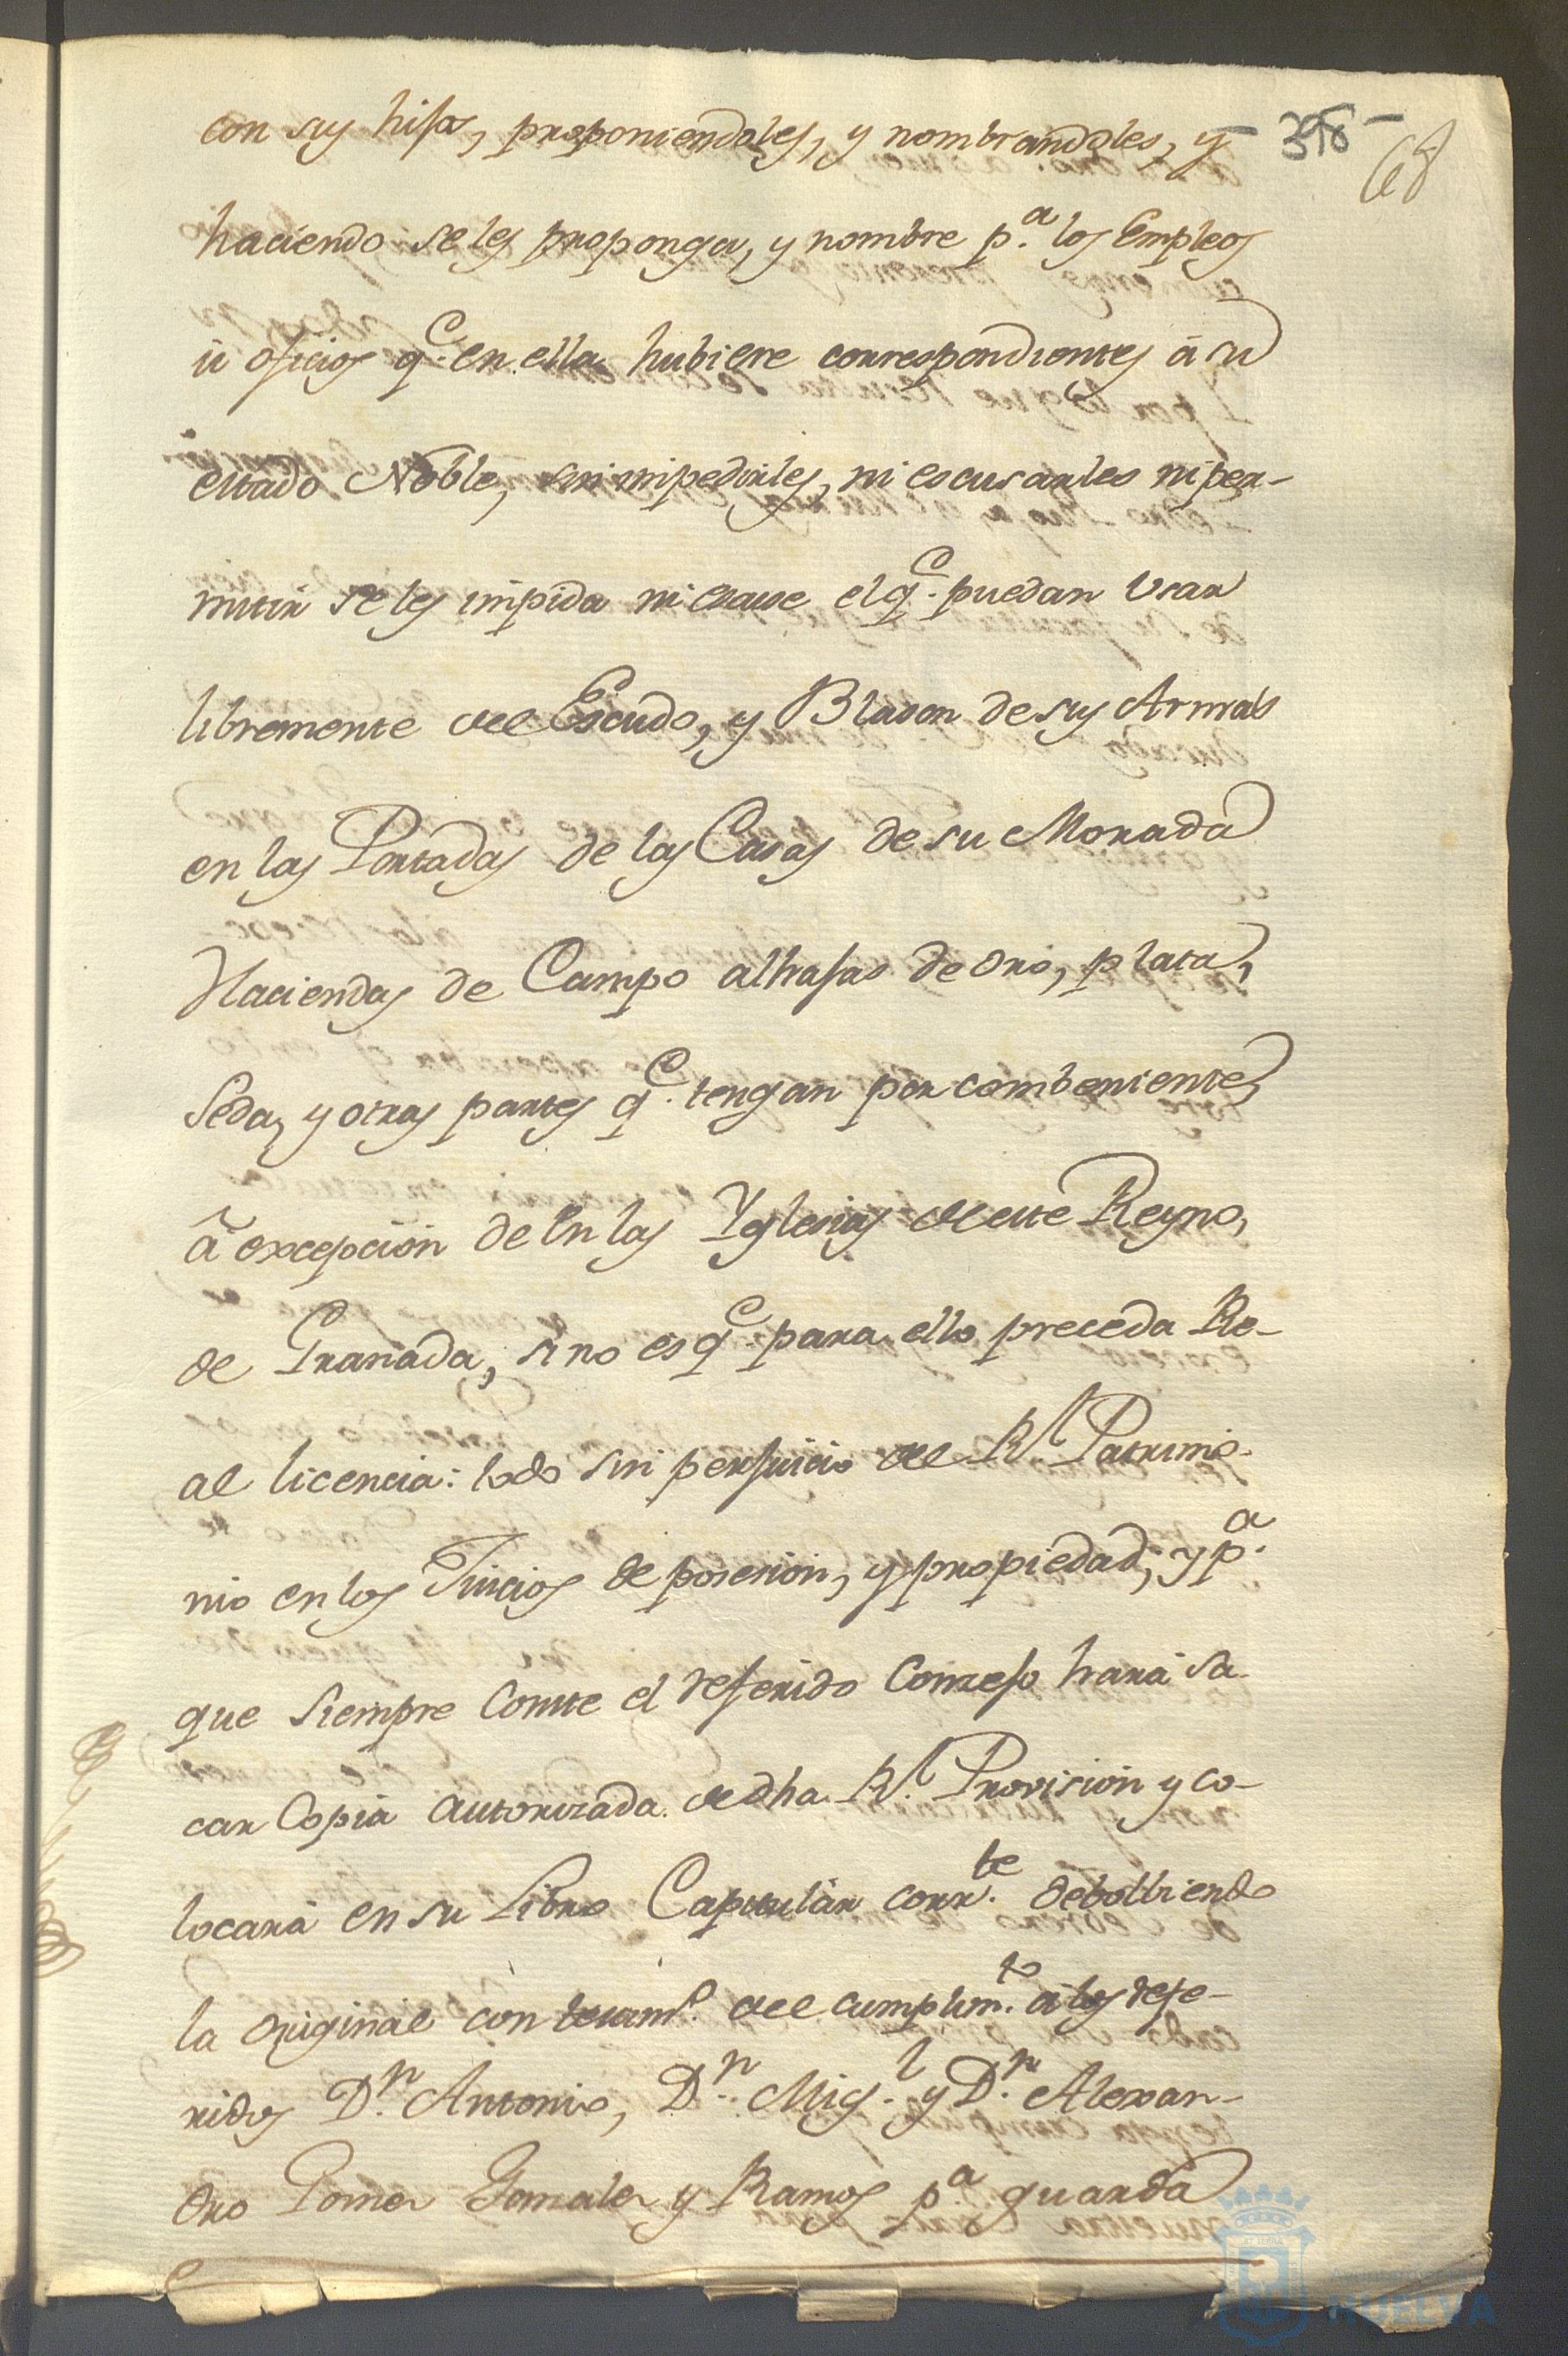 con sus hijos, proponiendoles, y nombrandoles, y
68
haciendo se les proponga, y nombre p.ª los Empleos
ù oficios q.e en ella hubiere correspondientes á su
estado Noble, sin impedirles, ni escusarles ni per-
mitir se les impida ni escuse el q.e puedan usar
libremente del Escudo, y Blason de sus Armas
en las Portadas de las Casas de su Morada
Haciendas de Campo alhajas de oro, plata,
Seda, y otras partes q.e tengan por combeniente,
à excepcion de en las Yglesias de este Reyno,
de Granada, si no es q.e para ello preceda Re-
al licencia: todo sin perjuicio del R.l Patrimo-
nio en los Juicios de posesion, y propiedad; y p.ª
que siempre Conste el referido Conzejo hará sa-
car Copia autorizada de dha R.l Provision y co-
locará en su Libro Capitular corr.te debolbiendo
la original con del cumplim.to à los refe-
ridos D.n Antonio, D.n Mig.l y D.n Alexan-
dro Gomez Gonzalez y Ramos p.ª guarda
Ayuntamiento de
HUELVA